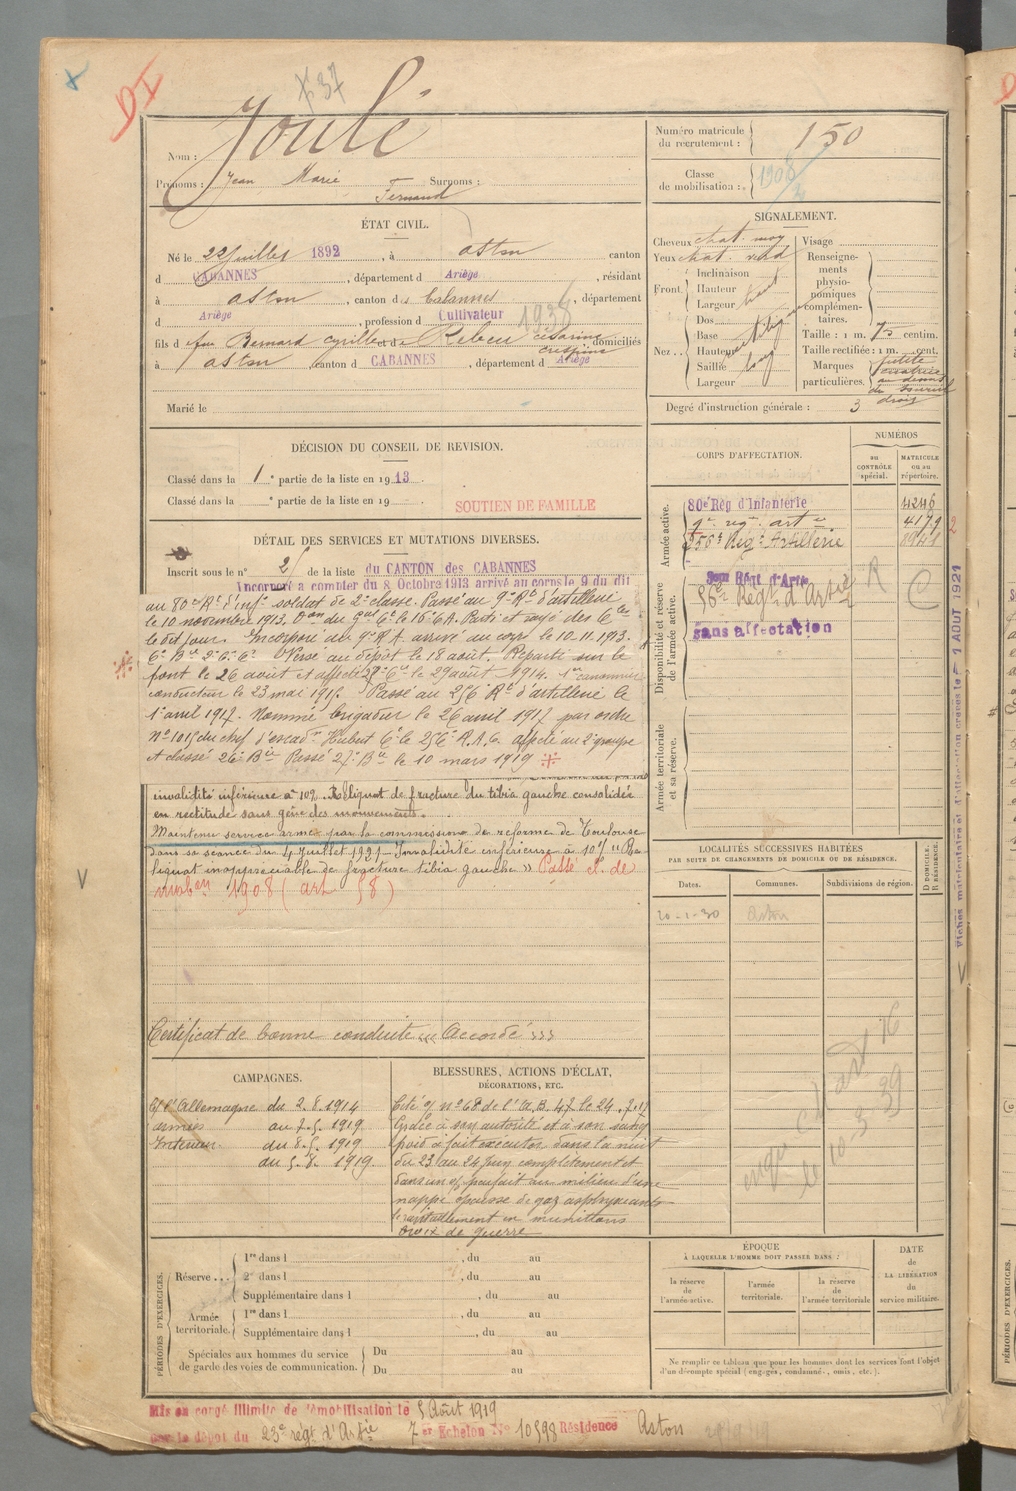 DI
37
Nom : Joulé
Prénoms : Jean Marie Fernand Surnoms :
Numéro matricule du recrutement : 150
Classe de mobilisation : 1908
ÉTAT CIVIL.
Né le 22 juillet 1892, à Aston canton
d CABANNES, département d Ariège, résidant
à Aston, canton des Cabannes, département
d Ariège, profession d Cultivateur
1938
fils d feu Bernard Cyrille et d Rebeu Césarine Crespine domiciliés
à Aston canton d CABANNES, département d Ariège
Marié le
SIGNALEMENT.
Cheveux chat. moy
Yeux chat. verd
Front. Inclinaison
Hauteur haut
Largeur
Nez.. Dos
Base
Hauteur
Saillie
Largeur
Visage
Renseignements physionomiques complémentaires.
Taille : 1 m. 75 centim.
Taille rectifiée : 1 m. cent.
Marques particulières. petite cicatrice au dessus du sourcil droit
Degré d'instruction générale : 3
DÉCISION DU CONSEIL DE REVISION.
Classé dans la 1e partie de la liste en 1913.
Classé dans la e partie de la liste en 19
SOUTIEN DE FAMILLE
DÉTAIL DES SERVICES ET MUTATIONS DIVERSES.
Inscrit sous le n° 25 de la liste du CANTON des CABANNES
Incorporé a compter du 8 Octobre 1913 arrivé au corps le 9 du dit
au 80e Rt d'inf. soldat de 2e classe. Passé au 9e Rt d'artillerie
le 10 novembre 1913. du 9 le 16 Parti et rayé des Cles
le dit jour. Incorporé au 9e R A arrivé au corps le 10.11.1913.
Versé au dépôt le 18 août. Réparti sur le
font le 26 août et affecté le 29 août 1914. 1e canonnier
conducteur le 23 mai 1915. Passé au 256 Rt d'artillerie le
1er avril 1917. Nommé brigadier le 26 avril 1917 par ordre
n° 1015 du chef d'escadron Hubert Ct le 256 R.A.C. affecté au 2e groupe
et classé 26e Bie Passé 27e Bie le 10 mars 1919
invalidité inférieure à 10% Reliquat de fracture du tibia gauche consolidée
en rectitude sans gêne des mouvements.
Maintenu service armé par la commission de réforme de Toulouse
dans sa séance du 4 Juillet 1921 - Invalidité inférieure à 10% Re
liquat inappréciable de fracture tibia gauche » Passé cl. de
mobon 1908 (art 58)
Certificat de bonne conduite « Accordé »
CORPS D'AFFECTATION.
NUMÉROS
au CONTRÔLE spécial.
MATRICULE ou au répertoire.
Armée active.
80e Rég d'Infanterie 4246
9e regt artie 4179
256e Regt Artillerie
Disponibilité et réserve de l'armée active.
56e Régt d'Artie R C
sans affectation
Armée territoriale et sa réserve.
Fiches matriculaires et d'affectation créées le 1 AOUT 1921
LOCALITÉS SUCCESSIVES HABITÉES
PAR SUITE DE CHANGEMENTS DE DOMICILE OU DE RÉSIDENCE.
Dates. Communes. Subdivisions de région. D DOMICILE. R RÉSIDENCE.
20-1-30 Aston
art 16
le 10-3-39
CAMPAGNES.
C/ l'Allemagne du 2.8.1914
armées au 7.5.1919
Intérieur du 8.5.1919
au 5.8.1919
BLESSURES, ACTIONS D'ÉCLAT,
DÉCORATIONS, ETC.
Cité o/ n° 68 de l'A.D. 47 le 24.7.17
Grâce à son autorité et à son sang
froid a fait exécuter dans la nuit
du 23 au 24 Juin complètement et
dans un o/ parfait au milieu d'une
nappe épaisse de gaz asphyxiants
le ravitaillement en munitions
Croix de guerre
PÉRIODES D'EXERCICES.
Réserve... 1re dans l , du au
2e dans l , du au
Supplémentaire dans l , du au
Armée territoriale. 1re dans l , du au
Supplémentaire dans l , du au
Spéciales aux hommes du service de garde des voies de communication. Du au
Du au
ÉPOQUE
À LAQUELLE L'HOMME DOIT PASSER DANS :
la réserve de l'armée active.
l'armée territoriale.
la réserve de l'armée territoriale
DATE de LA LIBÉRATION du service militaire.
Ne remplir ce tableau que pour les hommes dont les services font l'objet
d'un décompte spécial (engagés, condamnés, omis, etc.).
Mis en congé illimité de démobilisation le 5 Août 1919
par le dépôt du 23e régt d'Artie 7er Echelon No 10598 Résidence Aston
PÉRIODES D'EXERCICES.